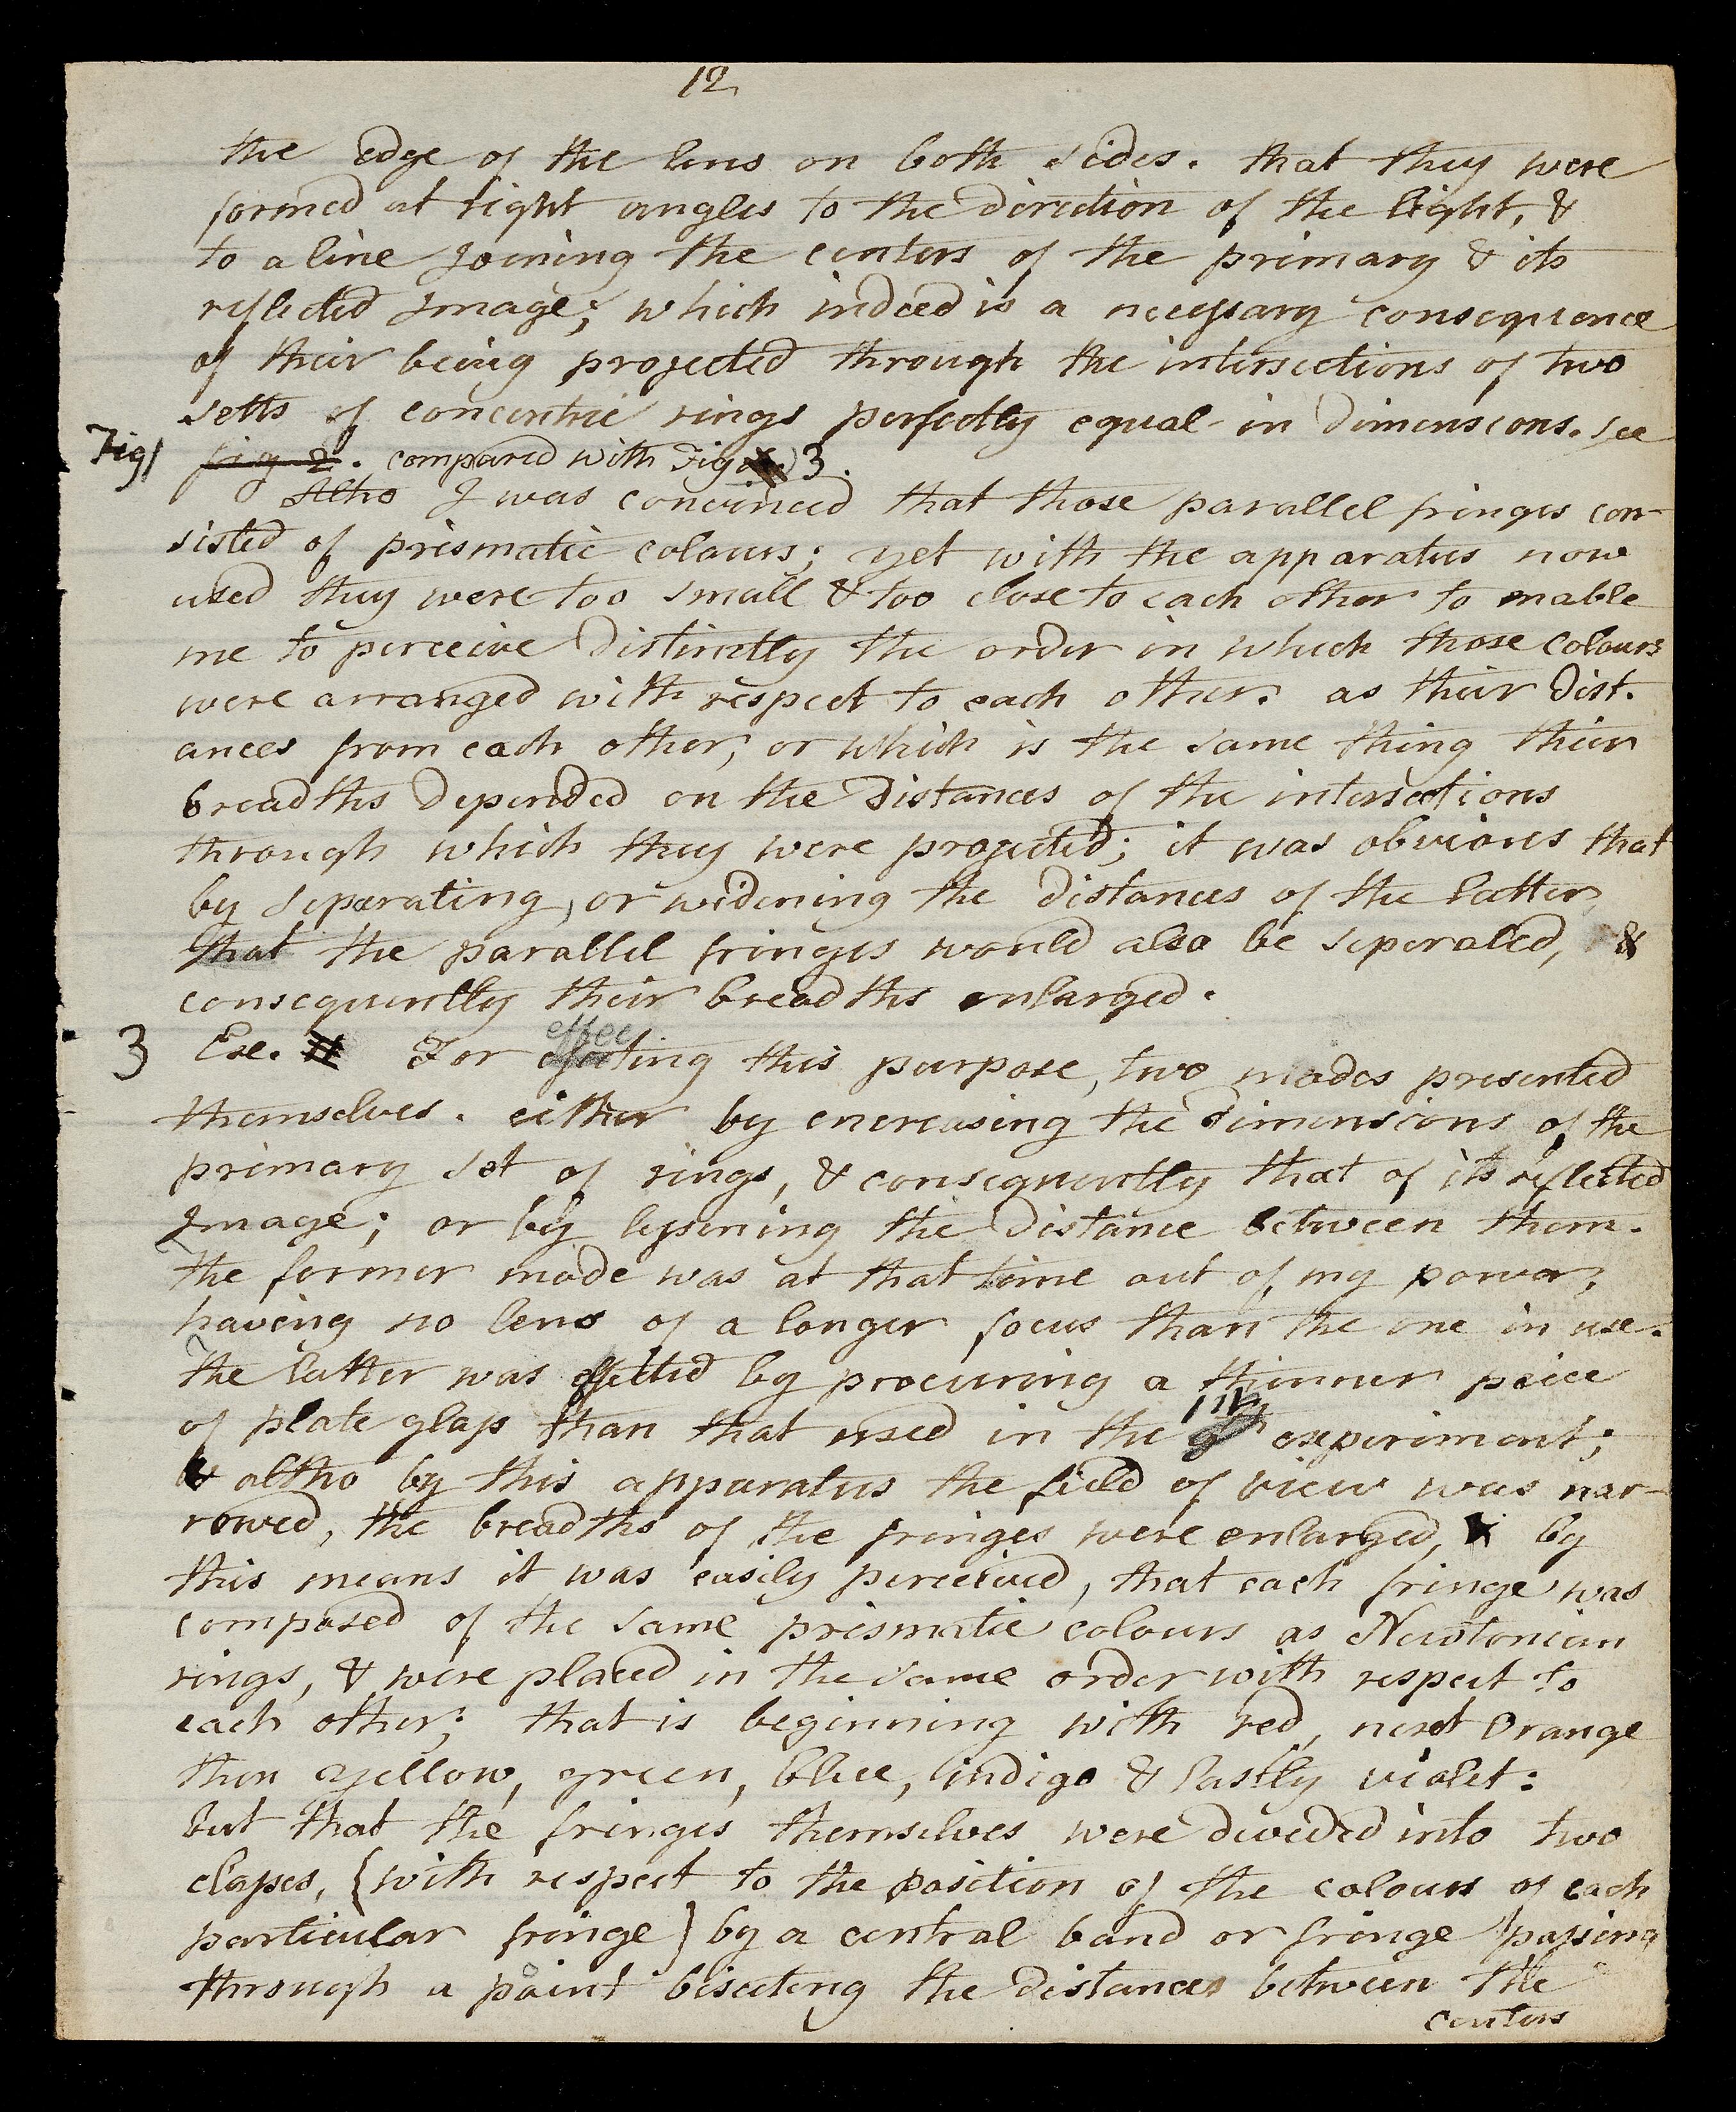 12
the edge of the lens on both sides. that they were
formed at right angles to the direction of the light, &
to a line joining the centers of the primary & its
reflected Image; which indeed is a necessary consequence
of their being projected through the intersections of two
setts of concentric rings perfectly equal in dimensions. see
Fig 1 fig 2. compared with Fig 3.
Altho I was convinced that those parallel fringes con-
sisted of prismatic colours; yet with the apparatus now
used they were too small & too close to each other to enable
me to perceive distinctly the order in which those colours
were arranged with respect to each other. as their dist-
ances from each other, or which is the same thing their
breadths depended on the distances of the intersections
through which they were projected; it was obvious that
by seperating, or widening the distances of the latter,
that the parallel fringes would also be seperated, &
consequently their breadths enlarged.
effec
3 Exe. For effecting this purpose, two modes presented
themselves. either by encreasing the dimensions of the
primary set of rings, & consequently that of its reflected
Image; or by lessening the distance between them.
the former mode was at that time out of my power,
having no lens of a longer focus than the one in use.
The latter was effected by procuring a thinner peice
of plate glass than that used in the experiment;
& altho by this apparatus the field of view was nar-
rowed, the breadths of the fringes were enlarged, & by
this means it was easily perceived, that each fringe was
composed of the same prismatic colours as Newtonian
rings, & were placed in the same order with respect to
each other; that is beginning with red, next Orange
then yellow, green, blue, indigo & lastly violet:
but that the fringes themselves were devided into two
classes, (with respect to the position of the colours of each
particular fringe) by a central band or fringe passing
through a point bisecting the distances between the
centers